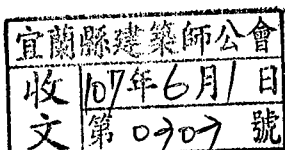 宜蘭縣建築師公會
收文
107年6月1日
第0707號